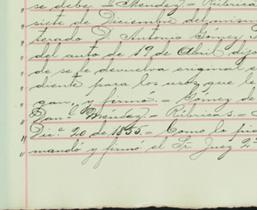 se debe. = Mendez = Rúbrica
siete de Diciembre del mism
terado D. Antonio Gómez, s
del auto de 19 de Abril, dijo
de se le devuelva
diente para los usos que le
gan, y firmó. = Gómez de
Dan.^l Mendez = Rúbricas. =
Dic.^e 20 de 1855. = Como lo pid
mandó y firmó el Sr. Juez 2º